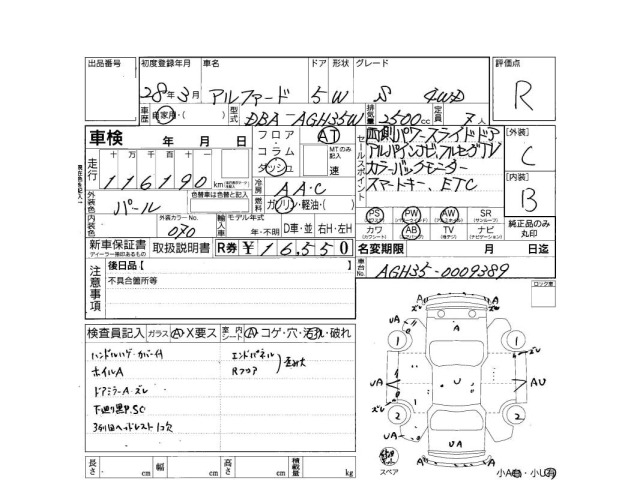 出品番号 初度登録年月 車名 ドア 形状 グレード 評価点
28年3月 アルファード 5 W S 4WD R
車歴 自家用・( ) 型式 DBA-AGH35W 排気量 2500cc 定員 7人
車検 年 月 日
フロア・コラム ダッシュ AT MTのみ記入 速
セールスポイント
両側パワースライドドア
アルパインナビ、フルセグTV
カラーバックモニター
スマートキー、ETC
[外装] C
[内装] B
走行 十 万 千 百 十
116190 km
冷房 AA・C
外装色 パール 色替車は色替と記入
燃料 ガソリン・軽油・( )
内装色 外装カラーNo. 070
輸入車 モデル年式 年・不明 D車・並 右H・左H
PS (パワステ) PW (パワーウインド) AW SR (サンルーフ)
カワ AB TV ナビ (ナビゲーション)
純正品のみ丸印
新車保証書 ディーラー無印あるもの 取扱説明書 R券 ¥16,550 名変期限 月 日迄
注意事項 後日品【 】
不具合箇所等
車台No. AGH35-0009389
ロック車
検査員記入 ガラス A・X要ス 室内シート A・コゲ・穴・汚れ・破れ
ハンドルハゲ・カバーA
ホイルA
ドアミラーA・ズレ
下廻り黒P.SC
3列目ヘッドレスト1コ欠
エンドパネル
Rフロア
歪み大
A
UA
A
1
1
ズレ
UA
A
U
AU
ズレ
2
2
UA
A
スペア
小A・小U
長さ cm 幅 cm 高さ cm 積載量 kg